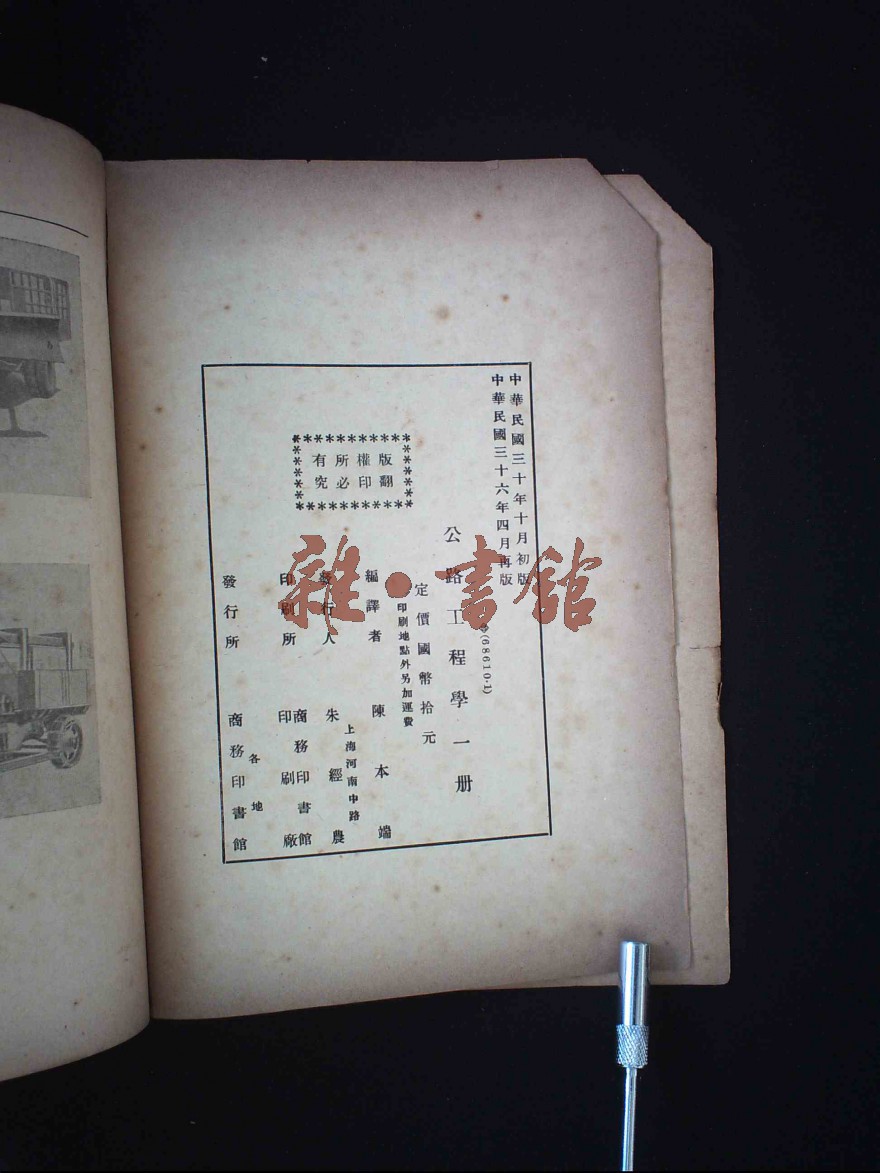 中華民國三十年十月初版
中華民國三十六年四月再版
(68610·1)
公路工程學一册
定價國幣拾元
印刷地點外另加運費
版權所有
翻印必究
編譯者 陳本端
上海河南中路
發行人 朱經農
印刷所 商務印書館印刷廠
各地
發行所 商務印書館
雜·書館